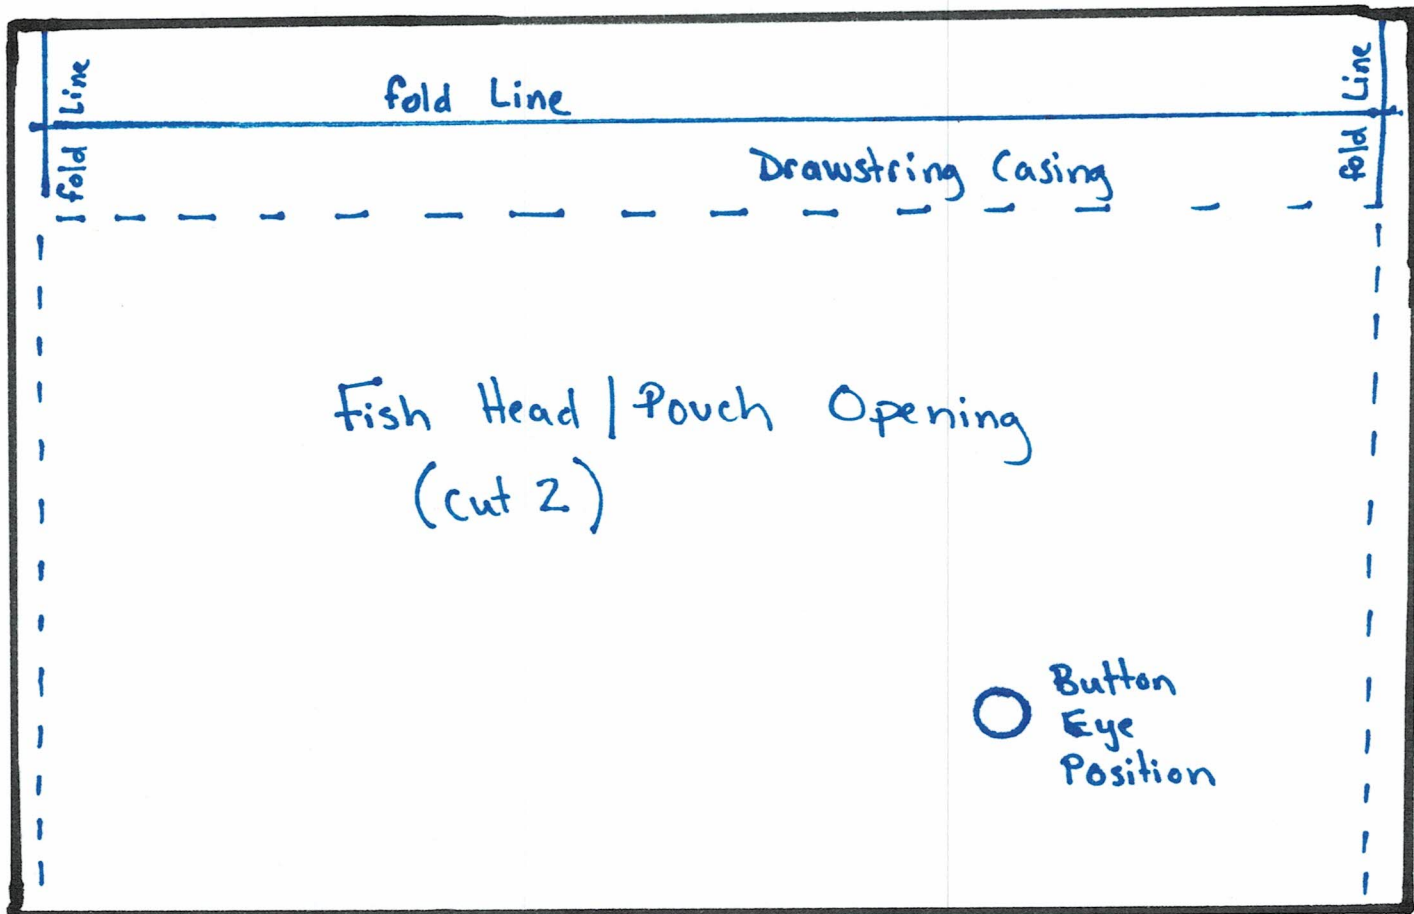 fold Line
fold Line
fold Line
Drawstring Casing
Fish Head | Pouch Opening
(cut 2)
Button
Eye
Position